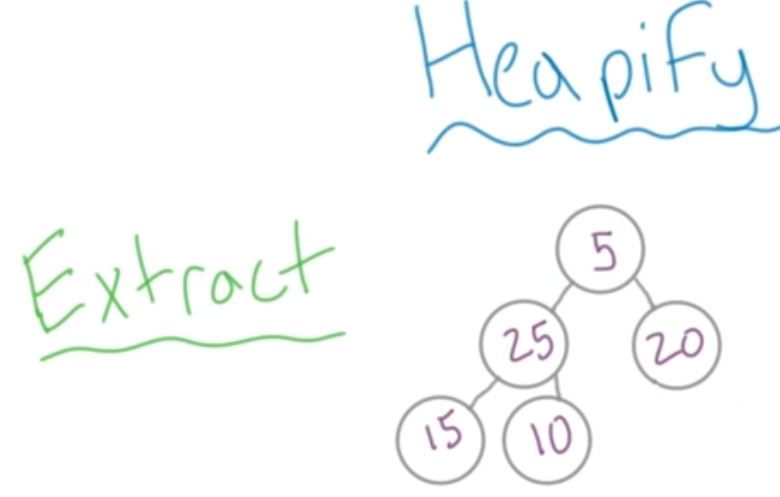 Heapify
Extract
5
25 20
15 10